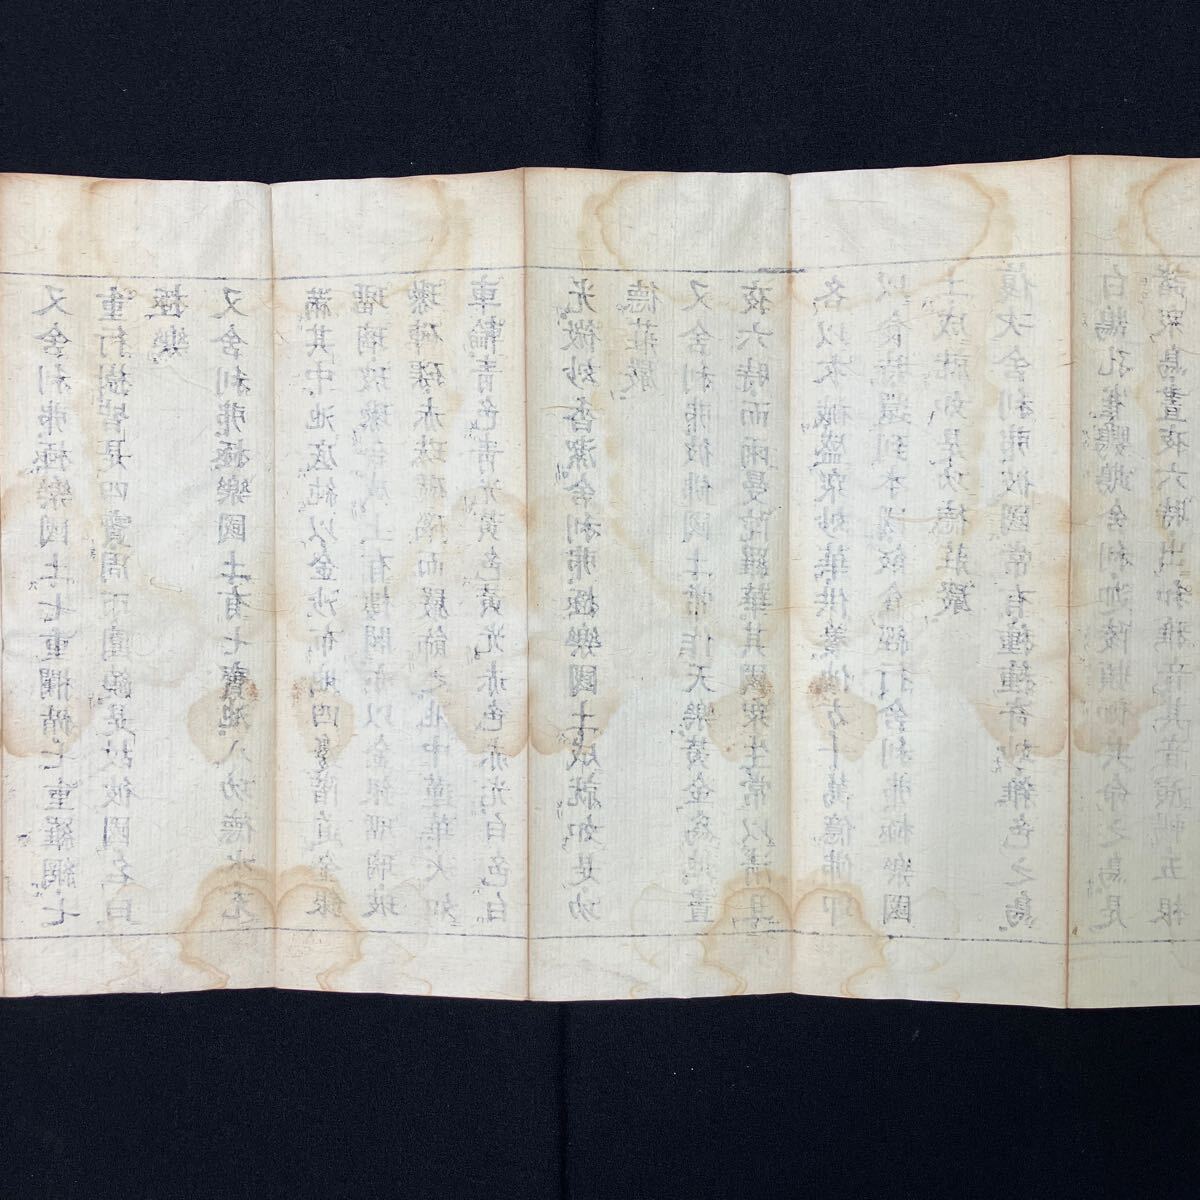 又舍利弗極樂國土七重欄楯七重羅網七
重行樹皆是四寶周帀圍繞是故彼國名曰
極樂
又舍利弗極樂國土有七寶池八功德水充
滿其中池底純以金沙布地四邊階道金銀
瑠璃玻瓈合成上有樓閣亦以金銀瑠璃玻
瓈硨磲赤珠碼碯而嚴飾之池中蓮華大如
車輪青色青光黃色黃光赤色赤光白色白
光微妙香潔舍利弗極樂國土成就如是功
德莊嚴
又舍利弗彼佛國土常作天樂黃金為地晝
夜六時而雨曼陀羅華其國衆生常以清旦
各以衣裓盛衆妙華供養他方十萬億佛即
以食時還到本國飯食經行舍利弗極樂國
土成就如是功德莊嚴
復次舍利弗彼國常有種種奇妙雜色之鳥
白鵠孔雀鸚鵡舍利迦陵頻伽共命之鳥是
諸衆鳥晝夜六時出和雅音其音演暢五根